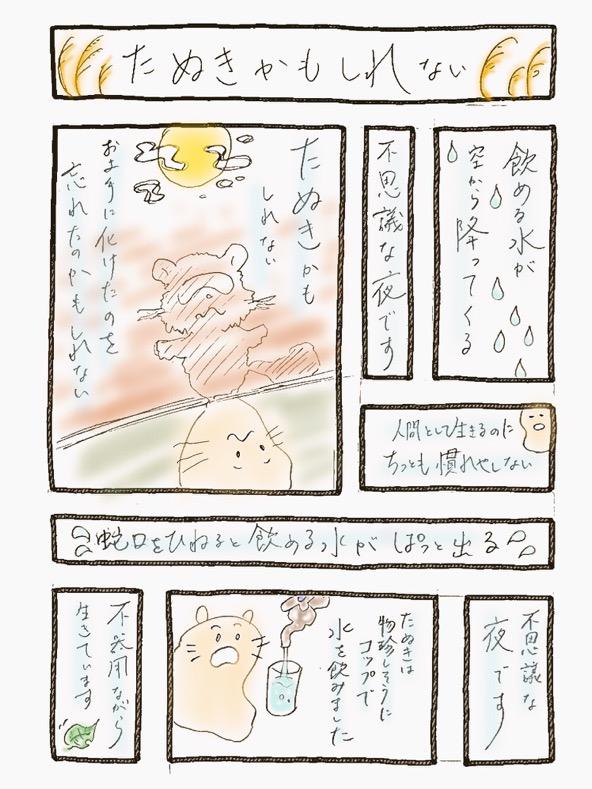 たぬきかもしれない
飲める水が
空から降ってくる
不思議な夜です
人間として生きるのに
ちっとも慣れやしない
たぬきかも
しれない
お上手に化けたのを
忘れたのかもしれない
蛇口をひねると飲める水がぱっと出る
不思議な
夜です
たぬきは
物珍しそうに
コップで
水を飲みました
不器用ながら
生きています